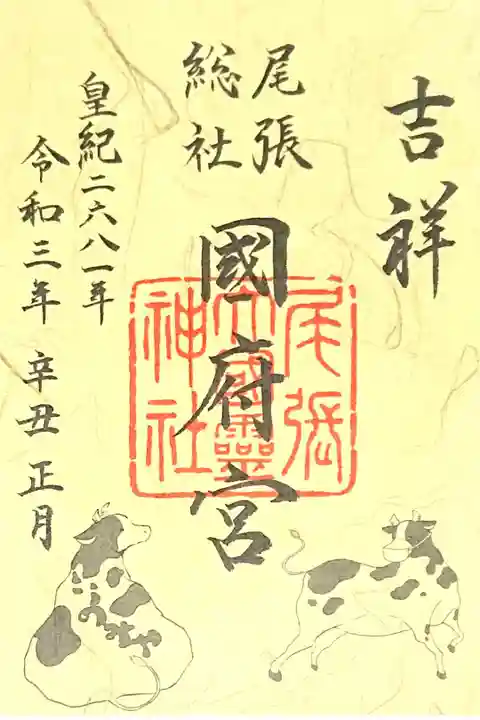 吉祥
尾張
総社
國府宮
皇紀二六八一年
令和三年 辛丑 正月
尾張
大國霊
神社
こうのみや